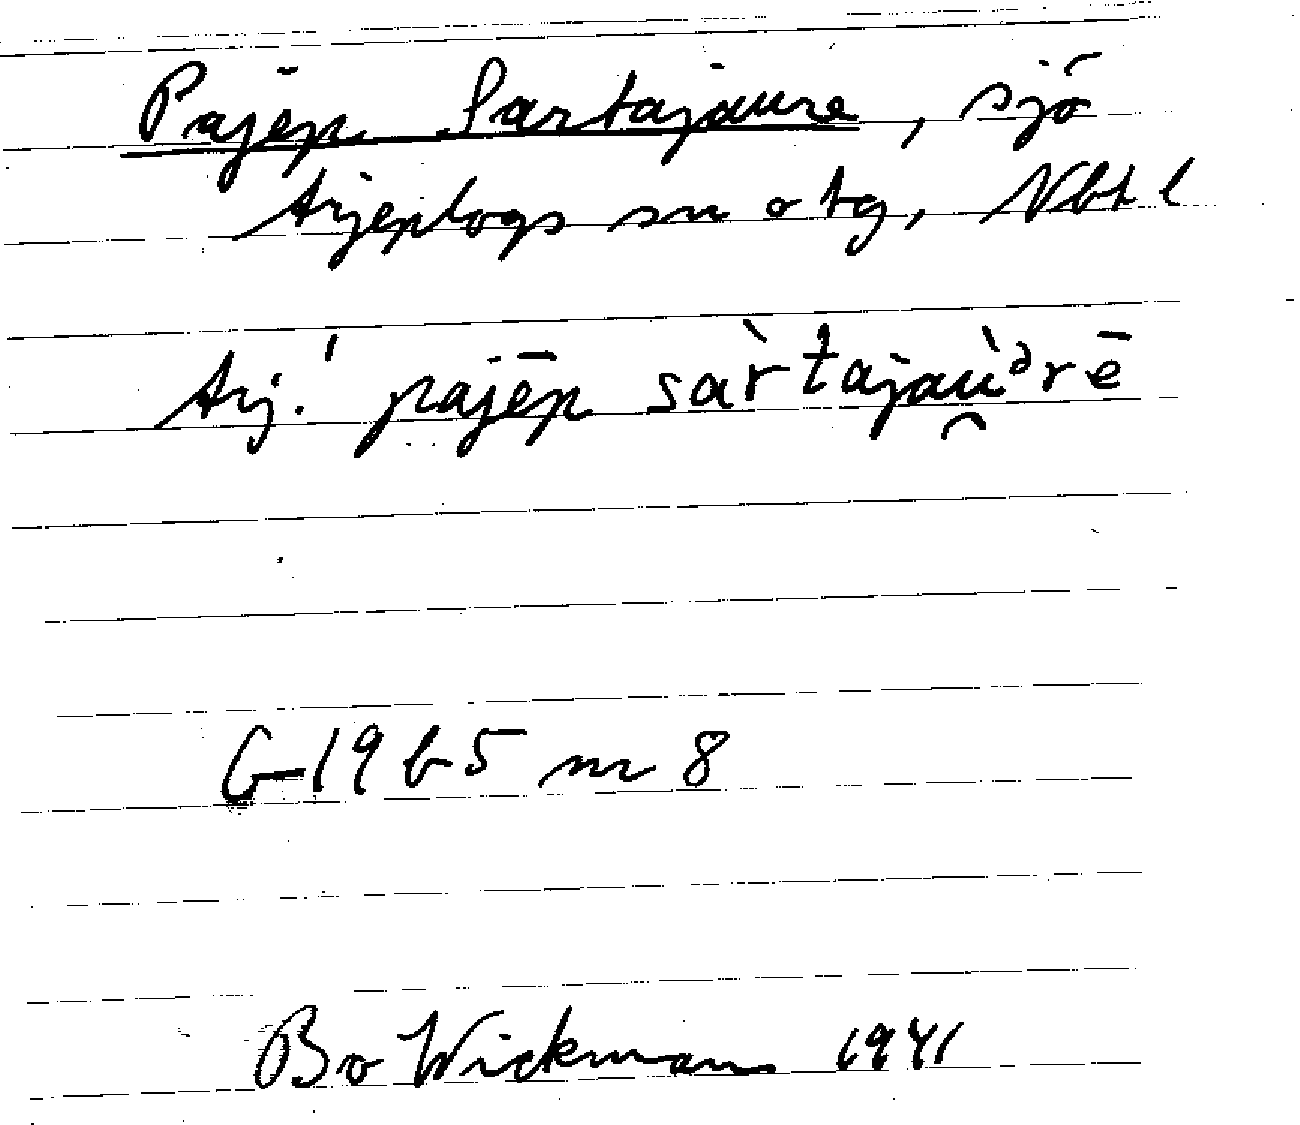 Pajēp Sartajaure, sjö
Arjeplogs sn o tg, Nbtl
Arj.' pajēp sar̀tajaù̯ᵊrē
G 19 b 5 nr 8
Bo Wickman 1941